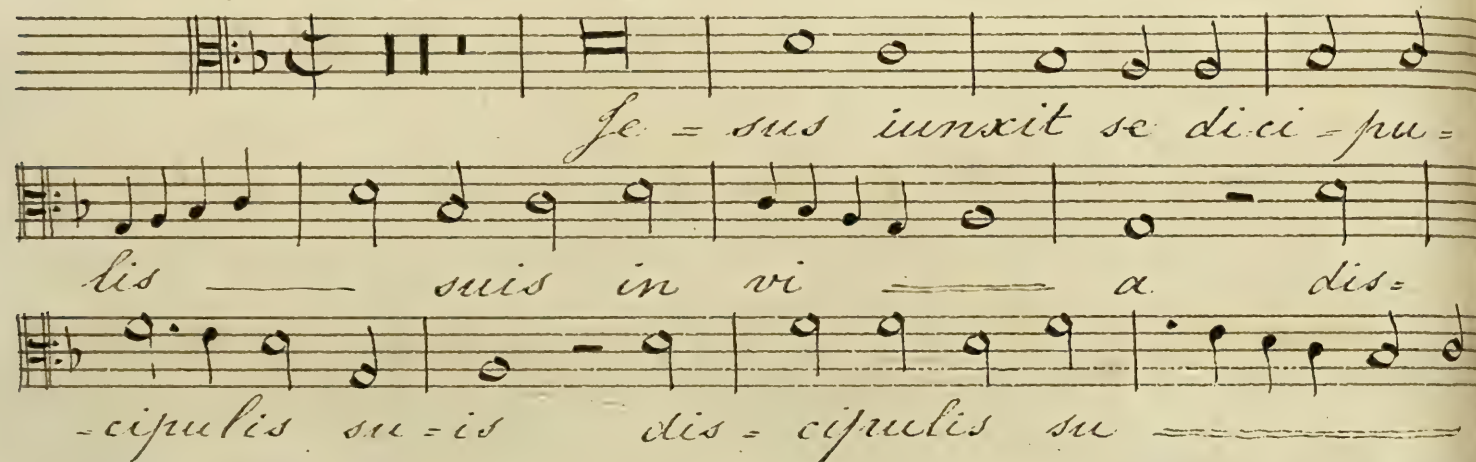 Je = sus iunxit se dici - pu =
lis suis in vi a dis =
- cipulis su = is dis = cipulis su